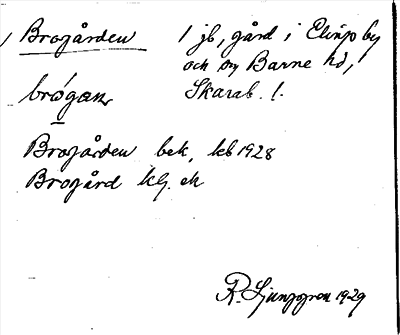 Brogården 1 jb, gård i Elings by
och sn Barne hd,
brógan Skarab. l.
Brogården bek, kb 1928
Brogård klj. ek
R. Ljunggren 1929